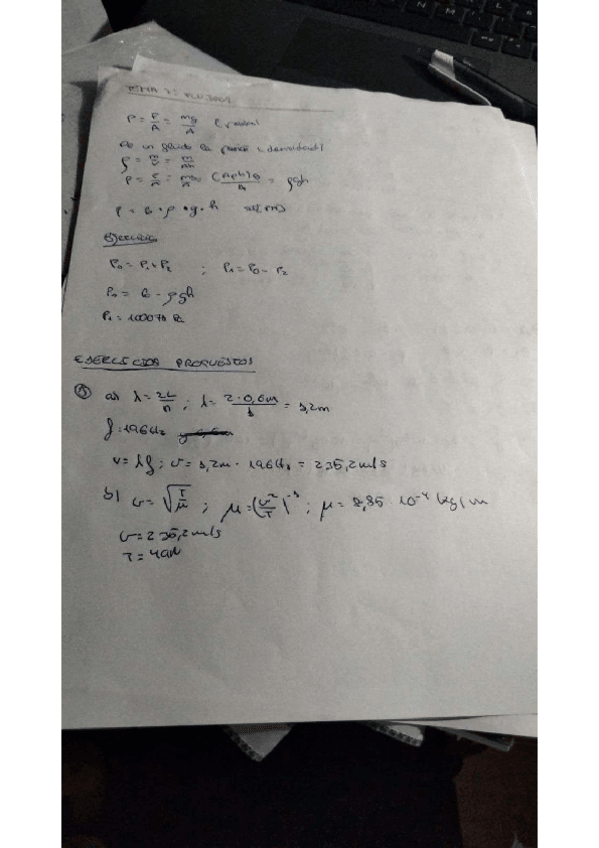 TEMA 7: FLUIDOS
P = F/A = mg/A (presión)
De un fluido la presión y densidad
ρ = m/V = m/Ah
P = F/A = mg/A = (Aρh)g/A = ρgh
P = · ρ · g · h
Ejercicio
P₀ = P₁ + P₂ ; P₁ = P₀ - P₂
P₀ = - ρgh
EJERCICIOS PROPUESTOS
① a) λ = 2L/n ; λ = 2·0,6m/1 = 1,2m
f = 196Hz
v = λf ; v = 1,2m · 196Hz = 235,2m/s
b) v = √(T/μ) ; μ = (v²/T)⁻¹ ; μ = 8,85 · 10⁻⁴ kg/m
v = 235,2m/s
T = 49N